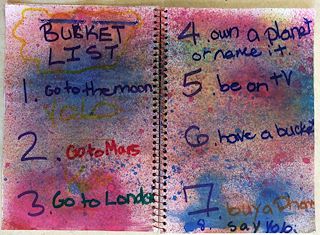 BUBKET
LIST
1. Go to the moon
YOLO
2. Go to Mars
3. Go to London
4. own a planet
or name it.
5 be on TV
6. have a bucket
7. buy a
8. say yolo.